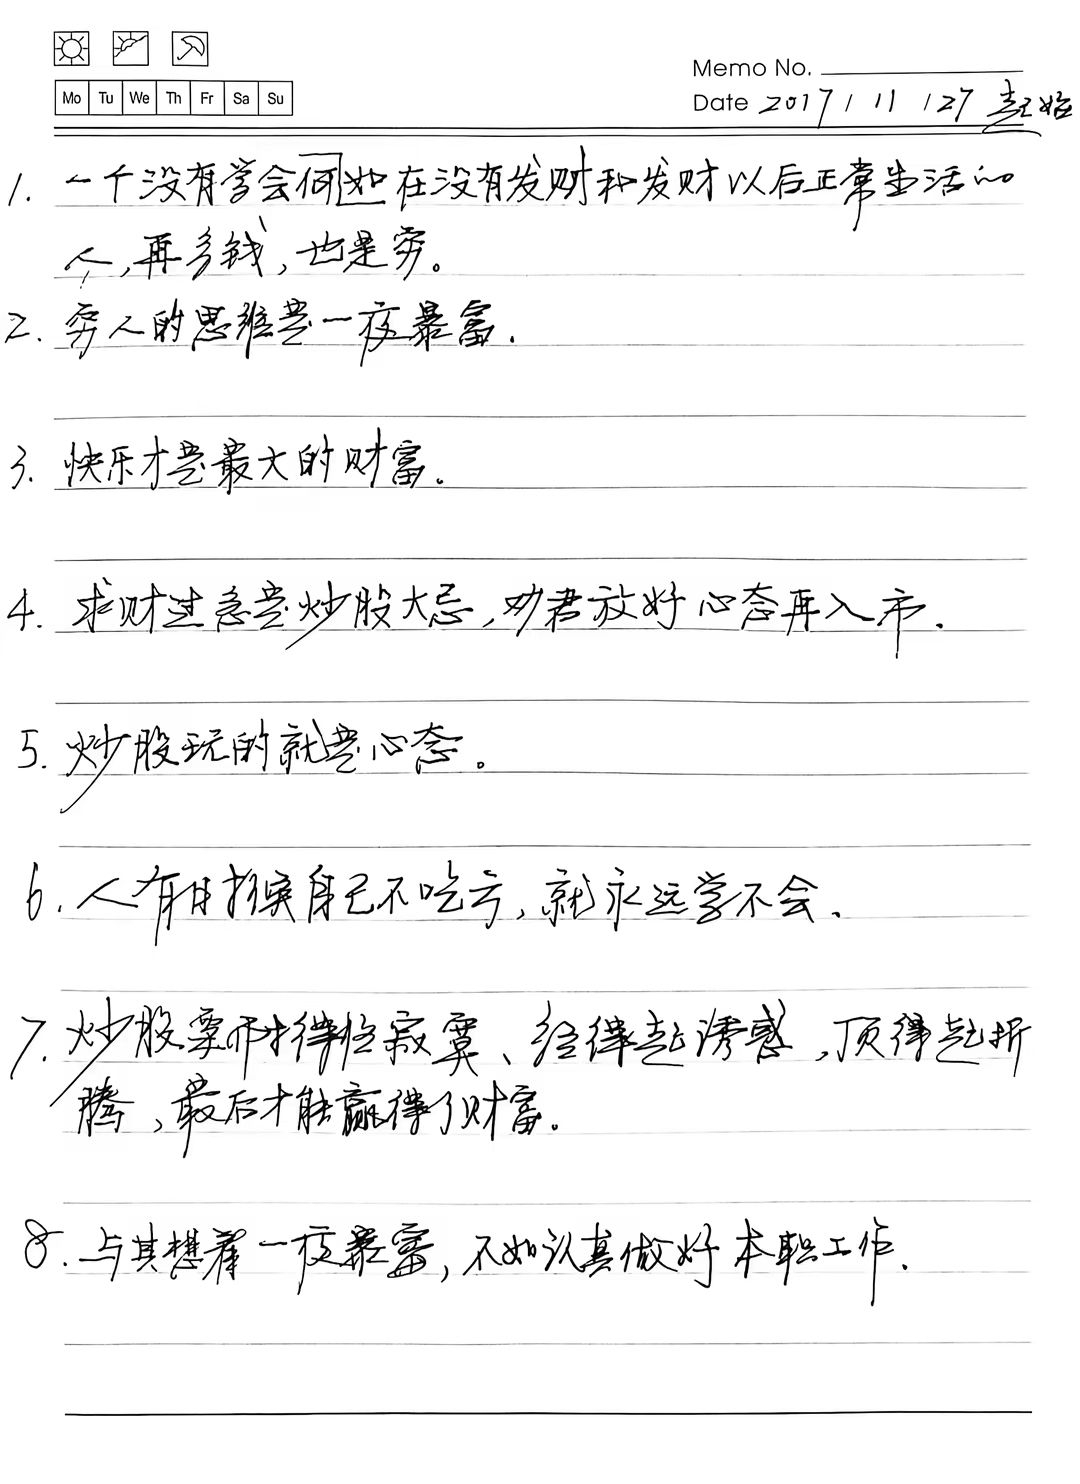 Memo No.
Mo Tu We Th Fr Sa Su
Date 2017/11/27
1. 一个没有学会何如在没有发财和发财以后正常生活的
人,再多钱,也是穷。
2. 穷人的思维是一夜暴富.
3. 快乐才是最大的财富。
4. 求财过急是炒股大忌,劝君放好心态再入市.
5. 炒股玩的就是心态。
6. 人 自己不吃亏,就永远学不会.
7. 炒股票耐得住寂寞、经得起诱惑,顶得起折
腾,最后才能赢得了财富。
8. 与其想着一夜暴富,不如认真做好本职工作.